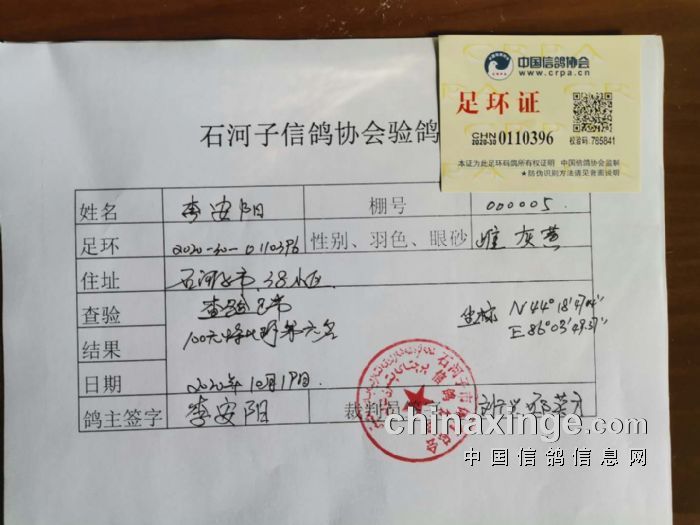 中国信鸽协会
www.crpa.cn
足环证
CHN
2020-30 0110396
校验码: 785841
本证为此足环码鸽所有权证明 中国信鸽协会监制
★防伪识别方法请见背面说明
石河子信鸽协会验鸽
姓名 李安阳 棚号 000005
足环 2020-30-0110396 性别、羽色、眼砂 雄 灰 黄
住址 石河子市 38小区
查验 结果 查验已毕
100元特比环第六名
坐标 N44°18′47
E 86°03′49.57″
日期 2020年10月17日
鸽主签字 李安阳 裁判员
石河子市信鸽协会
chinaxinge.com
中国信鸽信息网